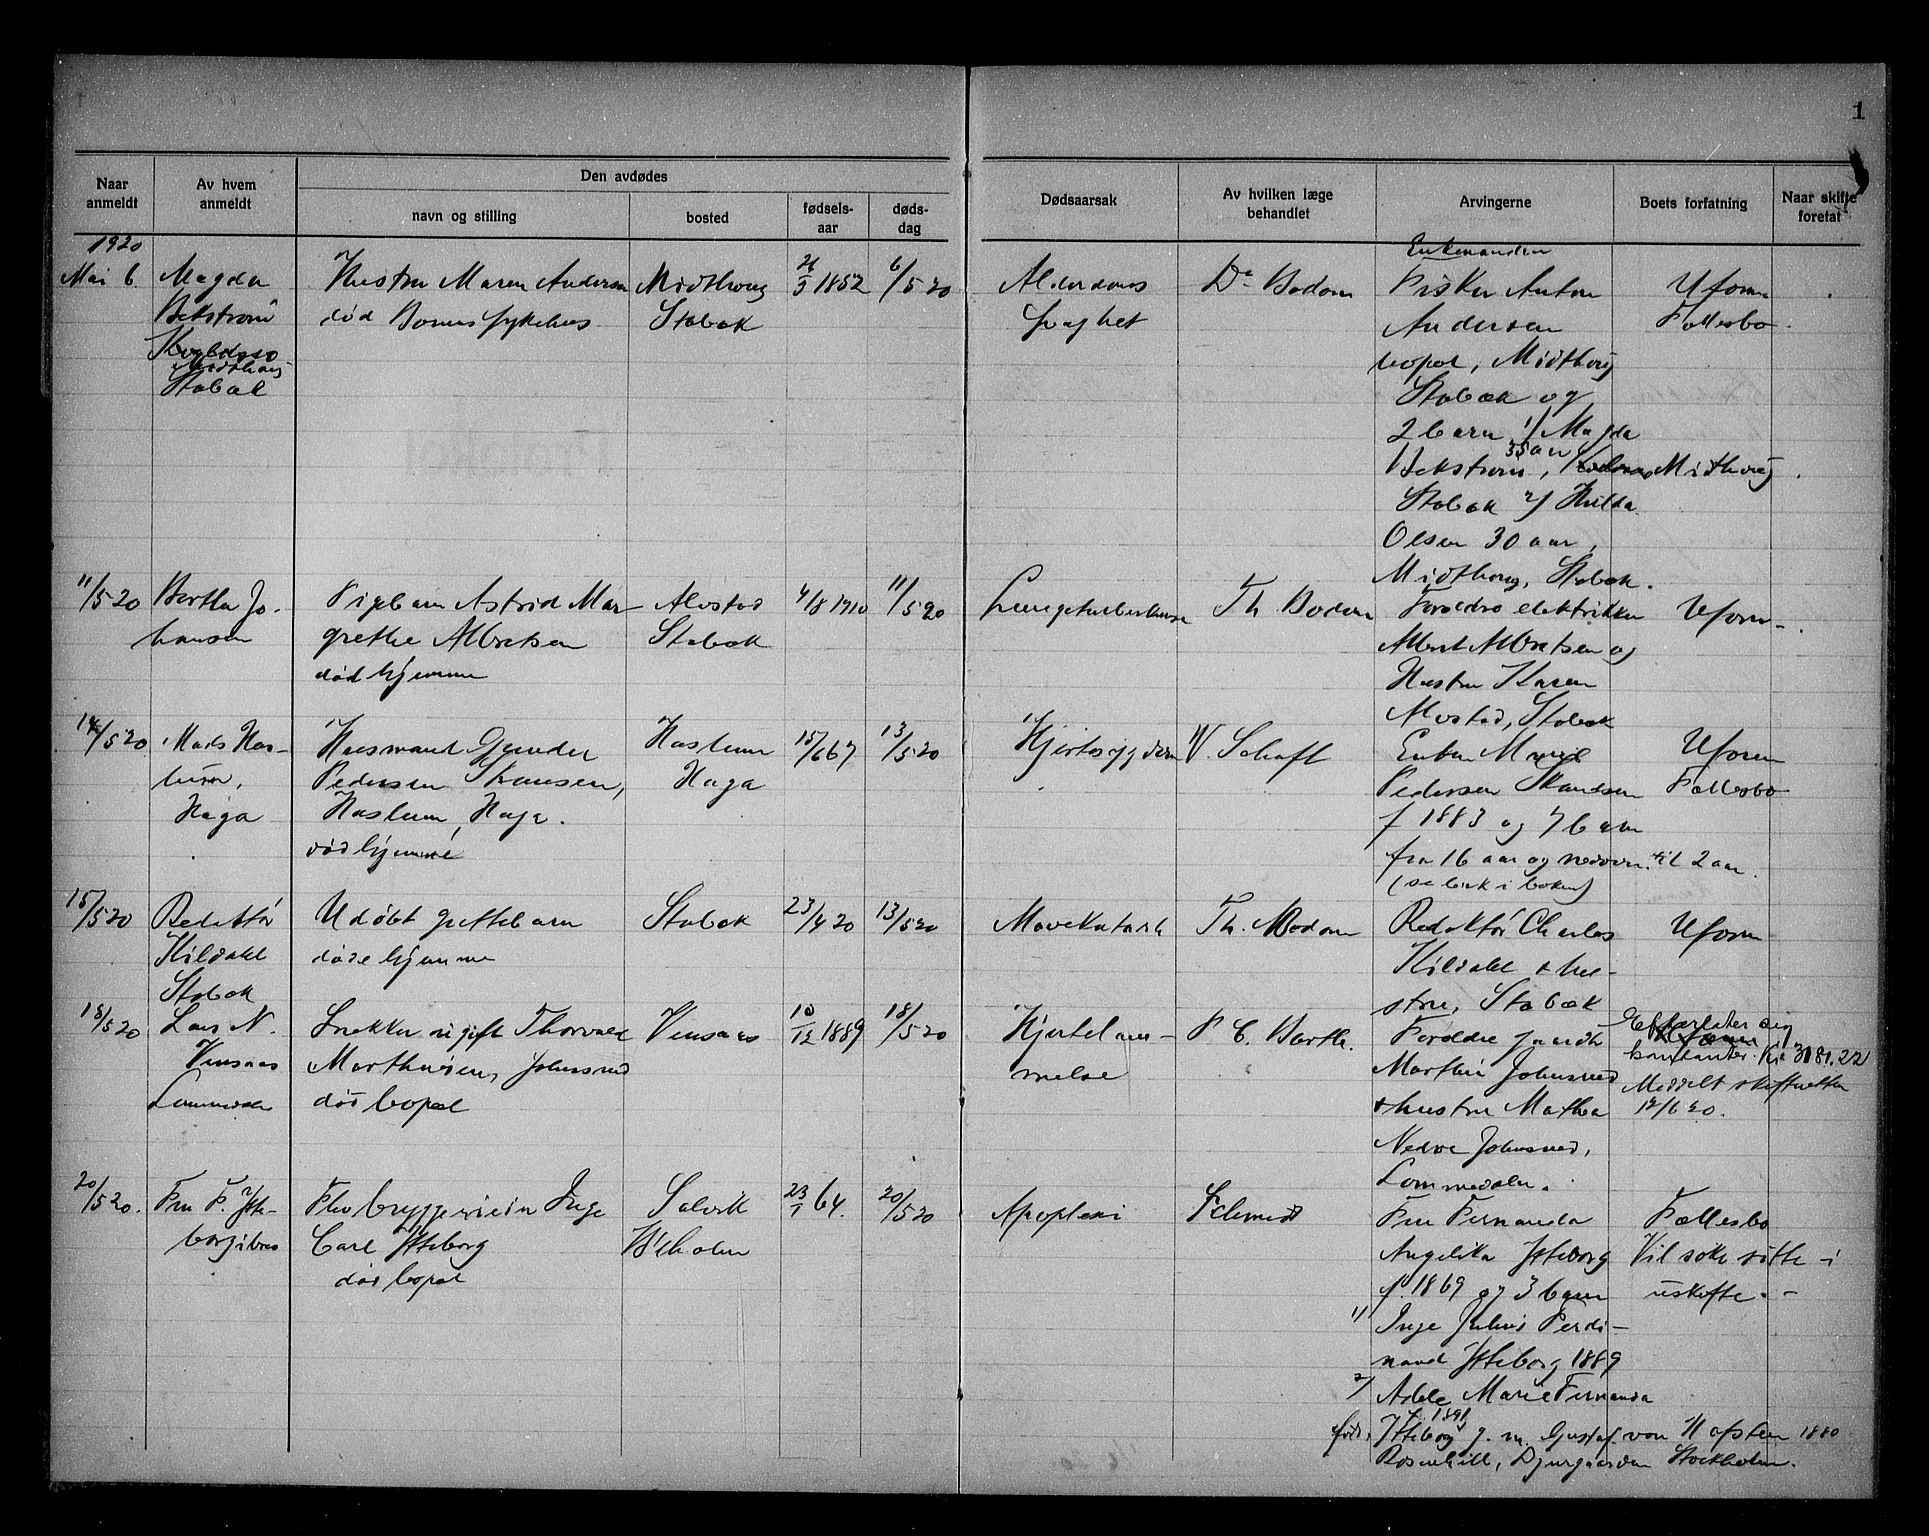 1
Naar anmeldt
Av hvem anmeldt
Den avdødes
navn og stilling
bosted
fødsels-aar
døds-dag
Dødsaarsak
Av hvilken læge behandlet
Arvingerne
Boets forfatning
Naar skifte foretat
1920
Mai 6.
Magda
Bekstrøm
Midthaug
Stabæk
Hustru Maren Andersen
død Bærums sykehus
Midthaug
Stabæk
1852
6/5 20
Alderdoms
svaghet
Dr Bodom
Enkemanden
Fisker Anton
Andersen
bopæl, Midthaug
Stabæk og
2 barn 1/ Magda
Bekstrøm, 35 aar Midthaug
Stabæk 2/ Hilda
Olsen 30 aar,
Midthaug, Stabæk.
Uform
Fællesbo
11/5 20
Bertha Jo-
hansen
Pigebarn Astrid Mar-
grethe Albretsen
død hjemme
Alvstad
Stabæk
4/8 1910
11/5 20
Lungetuberkulose
Th Bodom
Forældre elektriker
Albert Albretsen og
Hustru Karen
Alvstad, Stabæk
Uform.
14/5 20
Mads Has-
lum,
Haga
Husmand Gunder
Pedersen Skansen,
Haslum, Haga.
død hjemme
Haslum
Haga
15/6 67
13/5 20
Hjertesygdom
W Schaft
Enken Marie
Pedersen Skansen
f 1883 og 7 barn
fra 16 aar og nedover til 2 aar.
(se bak i boken)
Uform
Fællesbo
15/5 20
Redaktør
Kildahl
Stabæk
Udøbt guttebarn
døde hjemme
Stabæk
23/4 20
13/5 20
Mavekatarrh
Th. Bodom
Redaktør Charles
Kildahl + hu-
stru, Stabæk
Uform
18/5 20
Lars N.
Vensaas
Lommedalen
Snekker ugift Thorvald
Marthinsen, Johnsrud
død bopæl
Vensaas
10/12 1889
18/5 20
Hjertelam-
melse
P C Barth.
Forældre gaardbr
Marthin Johnsrud
+ hustru Mathea
Nedre Johnsrud,
Lommedalen.
Efterlater sig
kontanter. Kr 3181.22
Meddelt skifteretten
12/6 20.
20/5 20.
Fru F. Ytte-
borg ibid
Ølbryggerieier Inge
Carl Ytteborg
død bopæl
Solvik
B'lholm
23/1 64.
20/5 20
Apoplexi
Schmidt
Fru Fernanda
Angelika Ytteborg
f. 1869 og 3 barn
1/ Inge Julius Ferdi-
nand Ytteborg 1889
2/ Adele Marie Fernanda
f. 1891
født Ytteborg g. m. Gustaf von Hofsten 1880
Rosenhill, Djurgaarden Stockholm.
Fællesbo
Vil søke sitte i
uskifte.